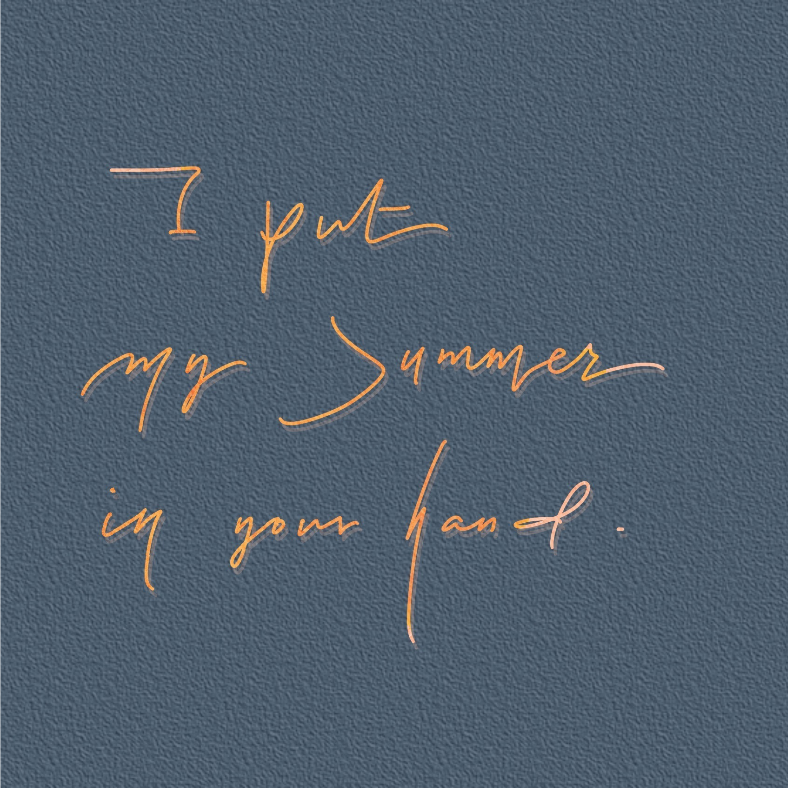 I put
my Summer
in your hand.